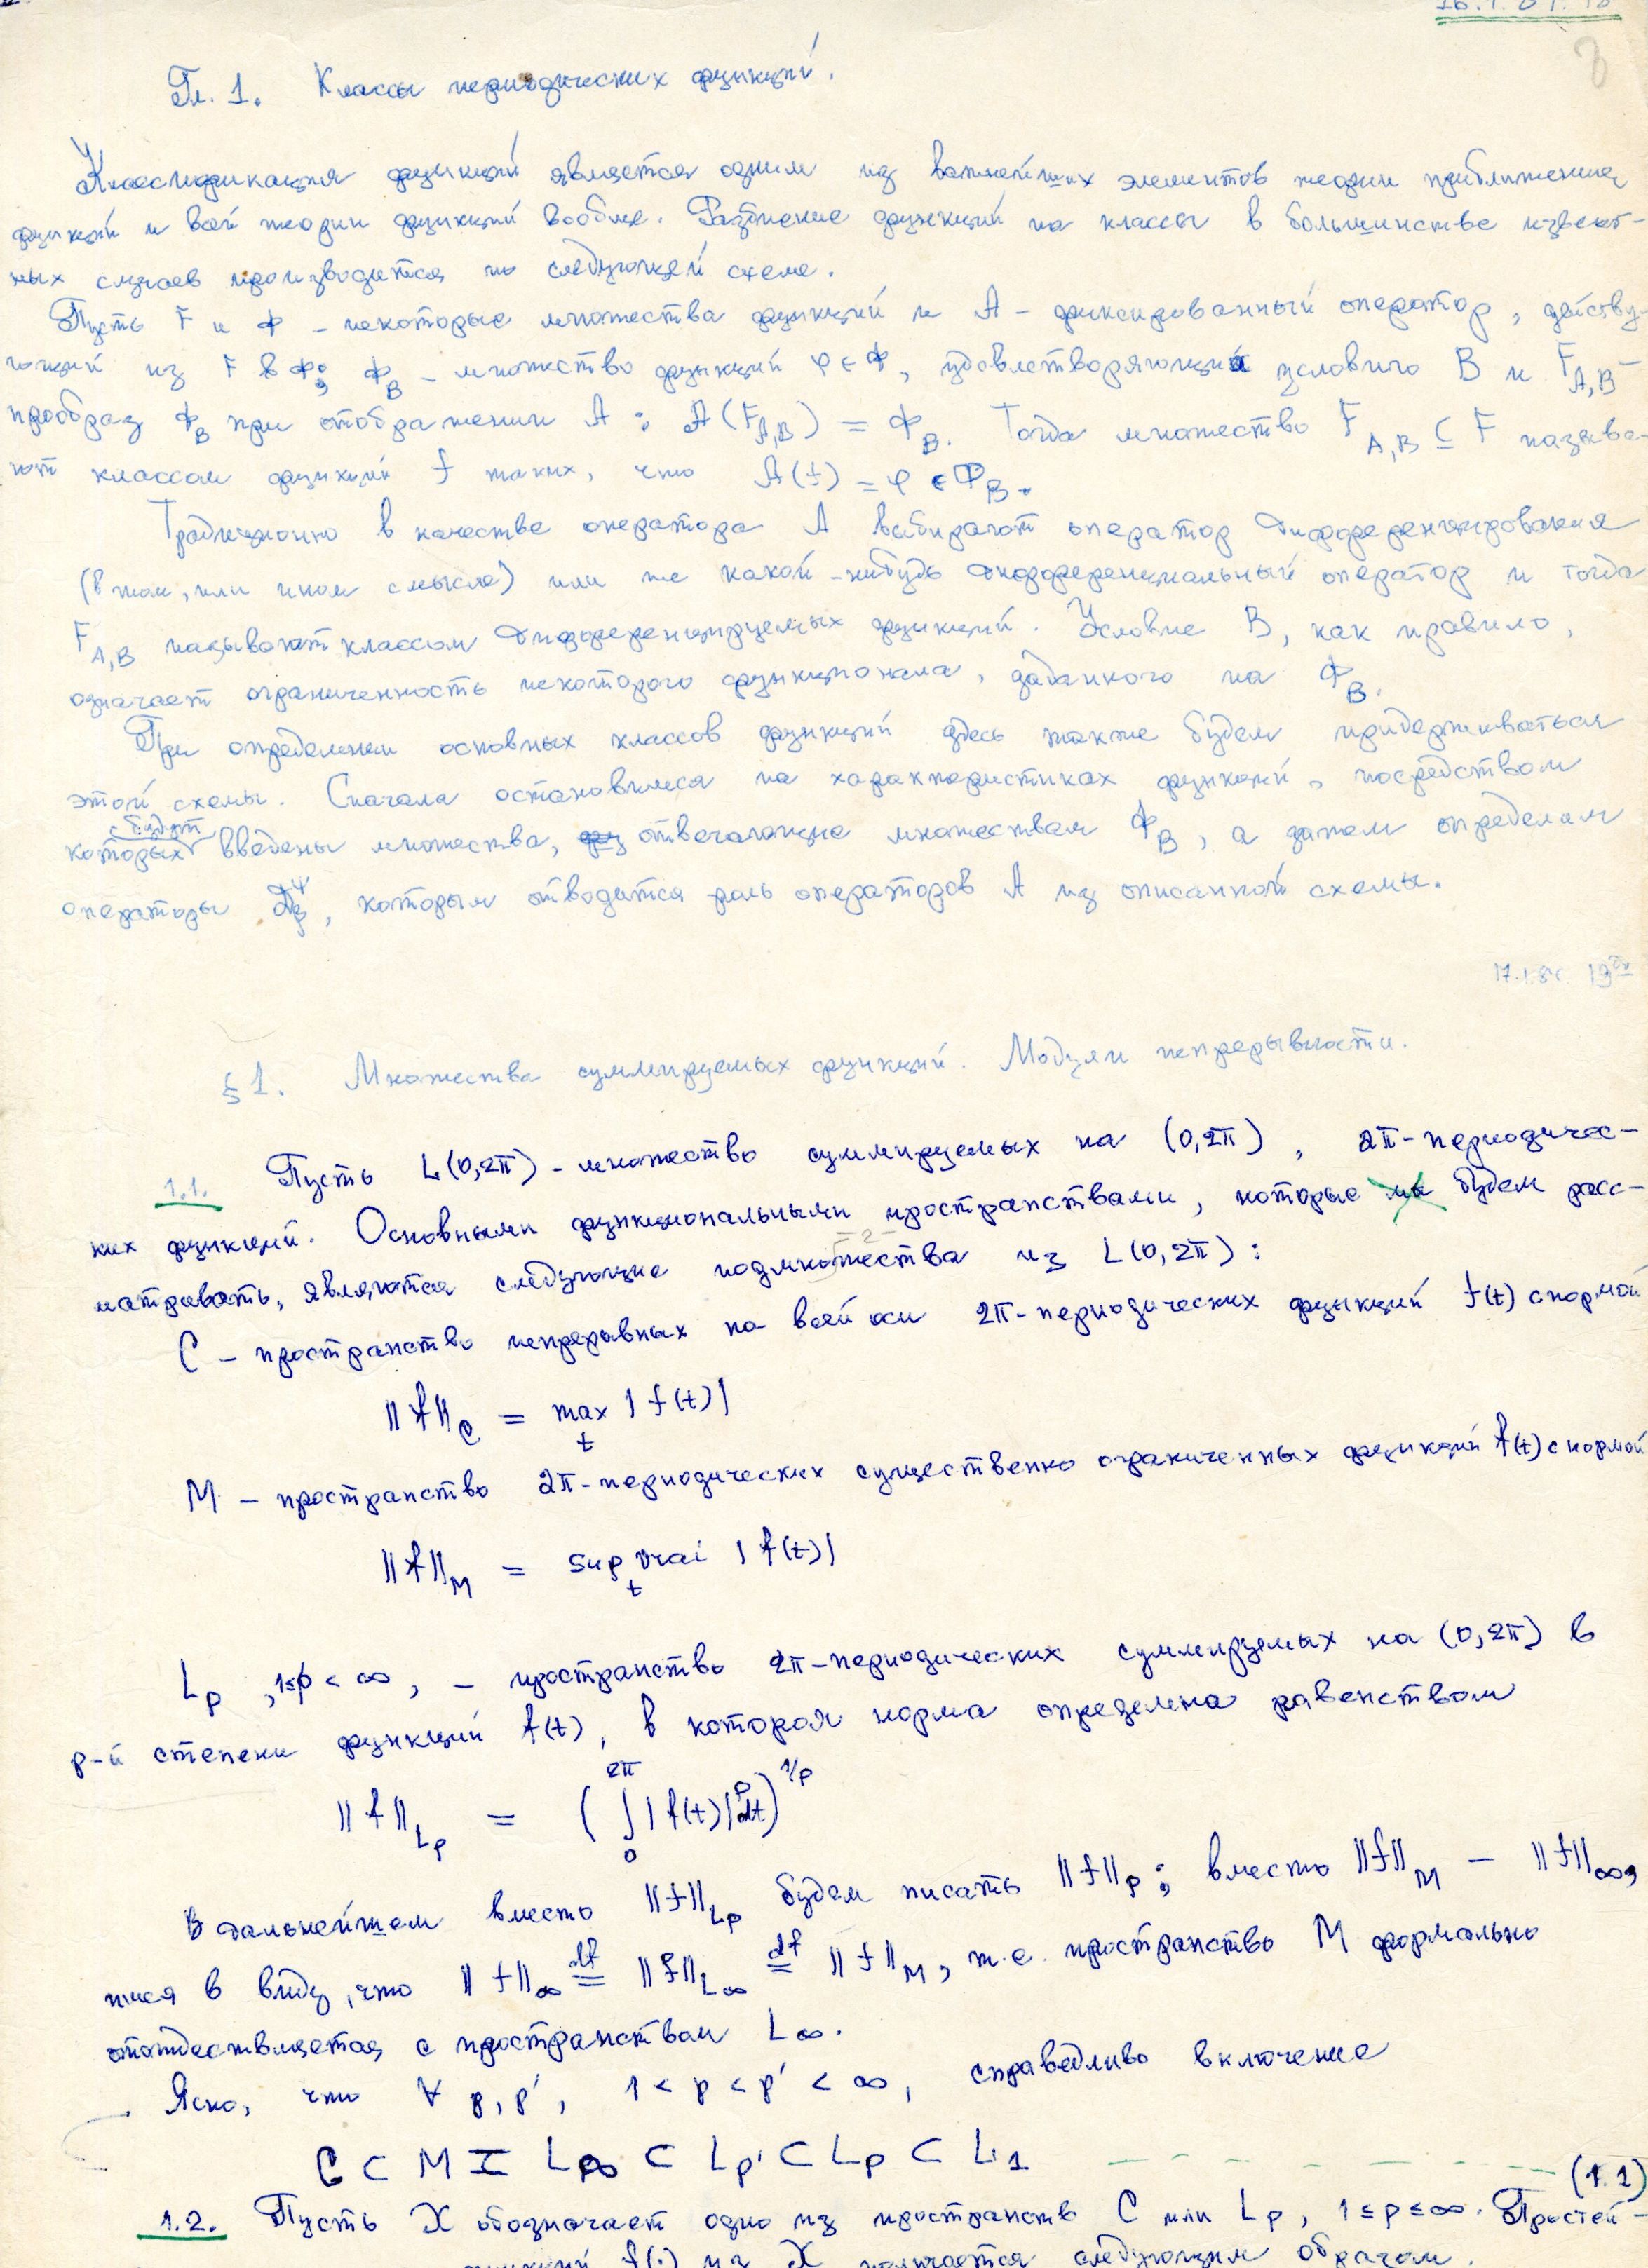 Гл. 1. Классы периодических функций.
Классификация функций является одним из важнейших элементов теории приближения
функций и всей теории функций вообще. Разбиение функций на классы в большинстве извест-
ных случаев производится по следующей схеме.
Пусть F и Φ – некоторые множества функций и A – фиксированный оператор, действу-
ющий из F в Φ; Φ_B – множество функций φ ∈ Φ, удовлетворяющих условию B и F_{A,B} –
прообраз Φ_B при отображении A : A(F_{A,B}) = Φ_B. Тогда множество F_{A,B} ⊆ F называ-
ют классом функций f таких, что A(f) = φ ∈ Φ_B.
Традиционно в качестве оператора A выбирают оператор дифференцирования
(в том, или ином смысле) или же какой-нибудь дифференциальный оператор и тогда
F_{A,B} называют классом дифференцируемых функций. Условие B, как правило,
означает ограниченность некоторого функционала, заданного на Φ_B.
При определении основных классов функций здесь также будем придерживаться
этой схемы. Сначала остановимся на характеристиках функций, посредством
которых будут введены множества, отвечающие множествам Φ_B, а затем определим
операторы , которым отводится роль операторов A из описанной схемы.
17.1.84 19
§1. Множества суммируемых функций. Модули непрерывности.
1.1. Пусть L(0,2π) – множество суммируемых на (0,2π), 2π-периодичес-
ких функций. Основными функциональными пространствами, которые мы будем расс-
матривать, являются следующие подмножества из L(0,2π):
-2-
C – пространство непрерывных на всей оси 2π-периодических функций f(t) с нормой
||f||_C = max_t |f(t)|
M – пространство 2π-периодических существенно ограниченных функций f(t) с нормой
||f||_M = sup vrai_t |f(t)|
L_p, 1≤p<∞, – пространство 2π-периодических суммируемых на (0,2π) в
p-й степени функций f(t), в котором норма определена равенством
||f||_{L_p} = (∫_0^{2π} |f(t)|^p dt)^{1/p}
В дальнейшем вместо ||f||_{L_p} будем писать ||f||_p; вместо ||f||_M – ||f||_∞,
имея в виду, что ||f||_∞ \overset{df}{=} ||f||_{L_∞} \overset{df}{=} ||f||_M, т.е. пространство M формально
отождествляется с пространством L_∞.
Ясно, что ∀ p, p', 1 < p < p' < ∞, справедливо включение
C ⊂ M = L_∞ ⊂ L_{p'} ⊂ L_p ⊂ L_1 (1.1)
1.2. Пусть X обозначает одно из пространств C или L_p, 1≤p≤∞. Простей-
f(·) из X следующим образом.